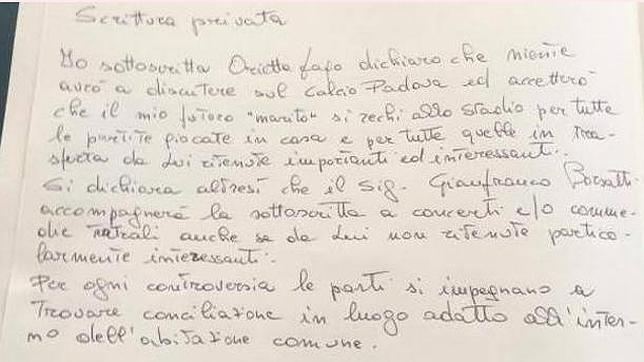 Scrittura privata
Io sottoscritta Orietta Fafo dichiaro che niente
avrò a discutere sul Calcio Padova ed accetterò
che il mio futuro "marito" si rechi allo stadio per tutte
le partite giocate in casa e per tutte quelle in tra-
sferta da lui ritenute importanti ed interessanti.
Si dichiara altresì che il Sig. Gianfranco
accompagnerà la sottoscritta a concerti e/o comme-
die teatrali anche se da lui non ritenute partico-
larmente interessanti.
Per ogni controversia le parti si impegnano a
trovare conciliazione in luogo adatto all'inter-
no dell'abitazione comune.